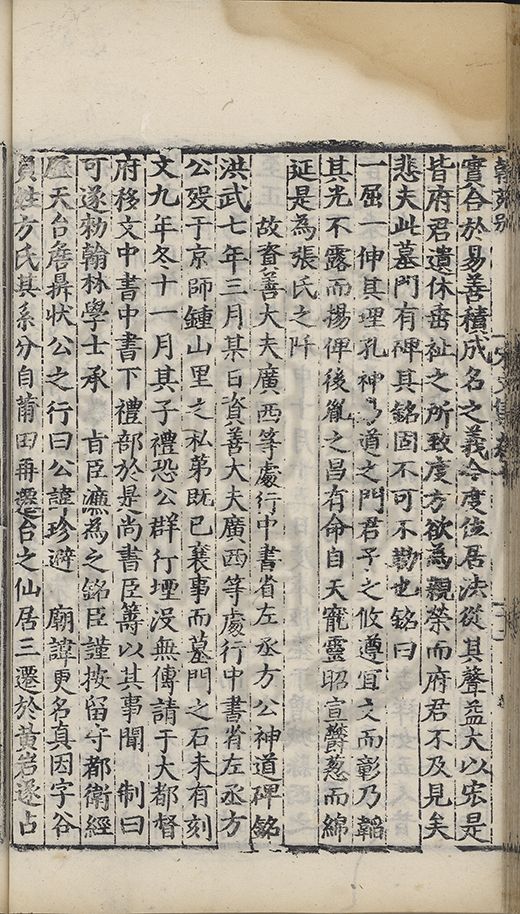 實合於易善積成名之義今度位居法從其聲益大以宏是
皆府君遺休畨祉之所致度方欲為親榮而府君不及見矣
悲夫此墓門有碑其銘固不可不勒也銘曰
一屈一伸其理孔神道之門君子之攸遵宜文而彰乃韜
其光不露而揚俾後胤之昌有命自天寵靈昭宣欝葱而綿
延是為張氏之阡
故資善大夫廣西等處行中書省左丞方公神道碑銘
洪武七年三月某日資善大夫廣西等處行中書省左丞方
公殁于京師鍾山里之私第既已襄事而墓門之石未有刻
文九年冬十一月其子禮恐公群行堙没無傳請于大都督
府移文中書中書下禮部於是尚書臣籌以其事聞 制曰
可遂勑翰林學士承 旨臣濂為之銘臣謹按留守都衛經
歷天台詹鼎狀公之行曰公諱珍避 廟諱更名真因字谷
真姓方氏其系分自莆田再遷台之仙居三遷於黄岩遂占